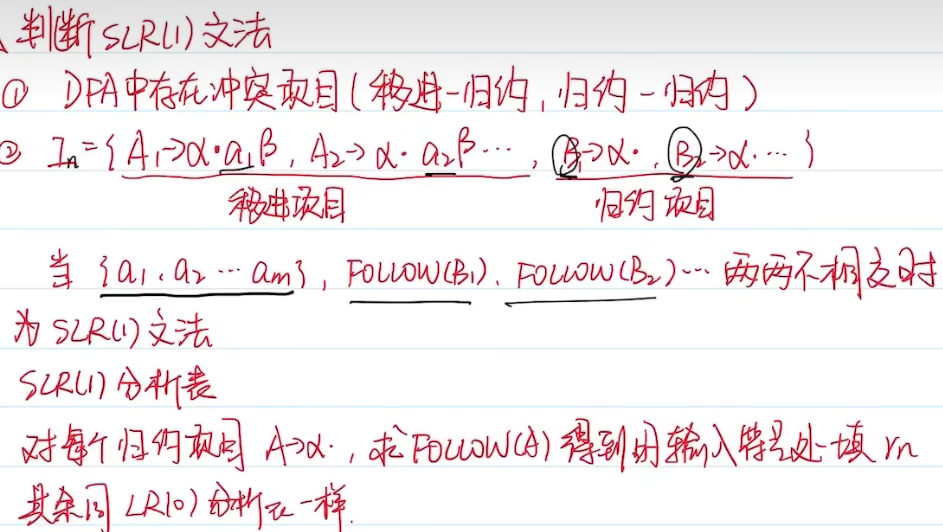 判断SLR(1)文法
① DFA中存在冲突项目(移进-归约,归约-归约)
② In={A1→α·a1β, A2→α·a2β…, B1→α·, B2→α·…}
移进项目 归约项目
当{a1、a2…am},FOLLOW(B1)、FOLLOW(B2)…两两不相交时
为SLR(1)文法
SLR(1)分析表
对每个归约项目A→α·,求FOLLOW(A)得到的输入符号处填rn
其余同LR(0)分析表一样.